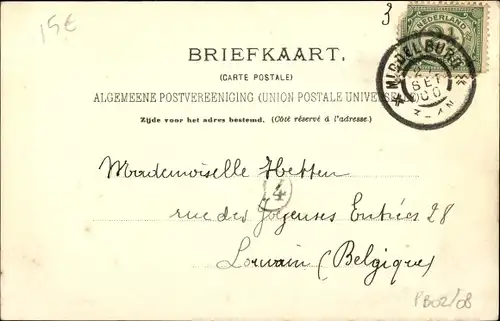 15€
3
NEDERLAND
MIDDELBURG
SEP
00
BRIEFKAART.
(CARTE POSTALE)
ALGEMEENE POSTVEREENIGING (UNION POSTALE UNIVERSELLE)
Zijde voor het adres bestemd. (Côté réservé à l'adresse.)
Mademoiselle Hetten
4
rue des Joyeuses Entrées 28
Louvain (Belgique)
PB02/08